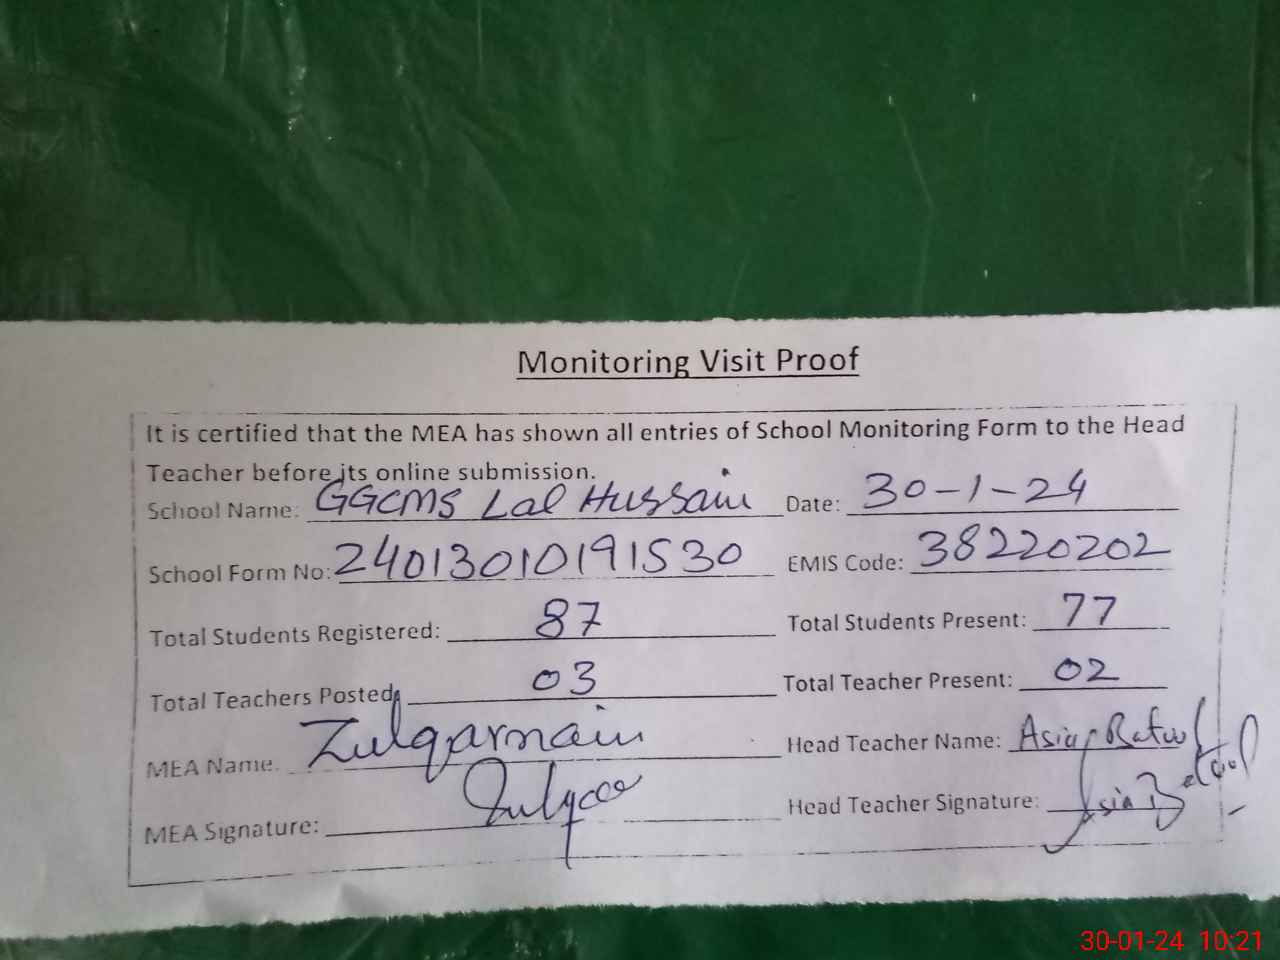 Monitoring Visit Proof
It is certified that the MEA has shown all entries of School Monitoring Form to the Head
Teacher before its online submission.
School Name: GGCMS Lal Hussain Date: 30-1-24
School Form No: 24013010191530 EMIS Code: 38220202
Total Students Registered: 87 Total Students Present: 77
Total Teachers Posted 03 Total Teacher Present: 02
MEA Name. Zulqarnain Head Teacher Name: Asia Batul
MEA Signature: Head Teacher Signature: Asia Batool
30-01-24 10:21